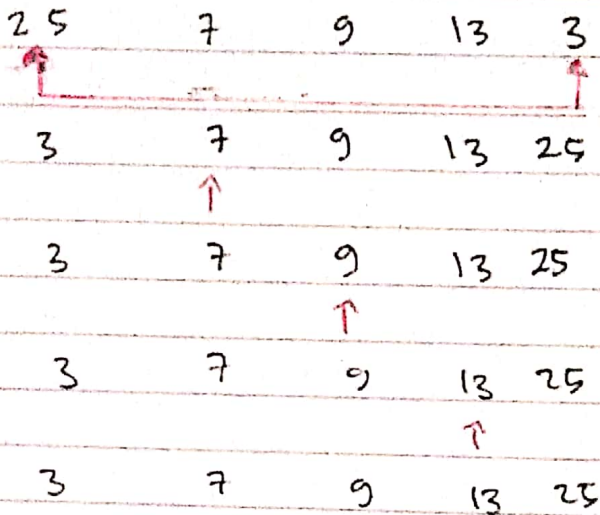 25 7 9 13 3
3 7 9 13 25
3 7 9 13 25
3 7 9 13 25
3 7 9 13 25